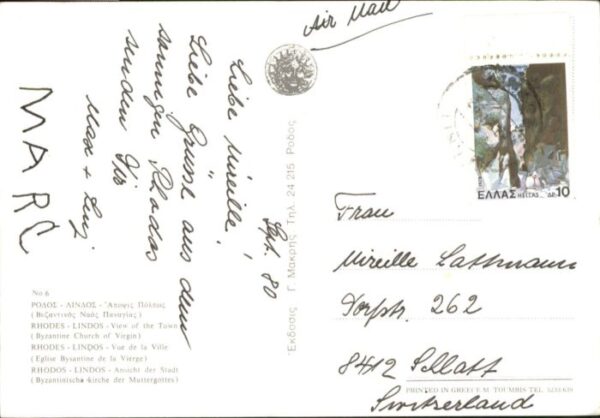 Air Mail
Sept. 80
Liebe Mireille!
Liebe Grüsse aus dem
sonnigen Rhodos
senden Dir
Max +
MARC
No 6
ΡΟΔΟΣ - ΛΙΝΔΟΣ - Ἄποψις Πόλεως
( Βυζαντινός Ναός Παναγίας )
RHODES - LINDOS - View of the Town
( Byzantine Church of Virgin )
RHODES - LINDOS - Vue de la Ville
( Eglise Bysantine de la Vierge )
RHODOS - LINDOS - Ansicht der Stadt
( Byzantinische kirche der Muttergottes )
Ἐκδοσεις Γ. Μακρης Τηλ. 24 215 Ροδος
ΕΛΛΑΣ HELLAS ΔΡ. 10
Frau
Mireille Lattmann
Dorfstr. 262
8412
Switzerland
PRINTED IN GREECE M. TOUMBIS TEL.